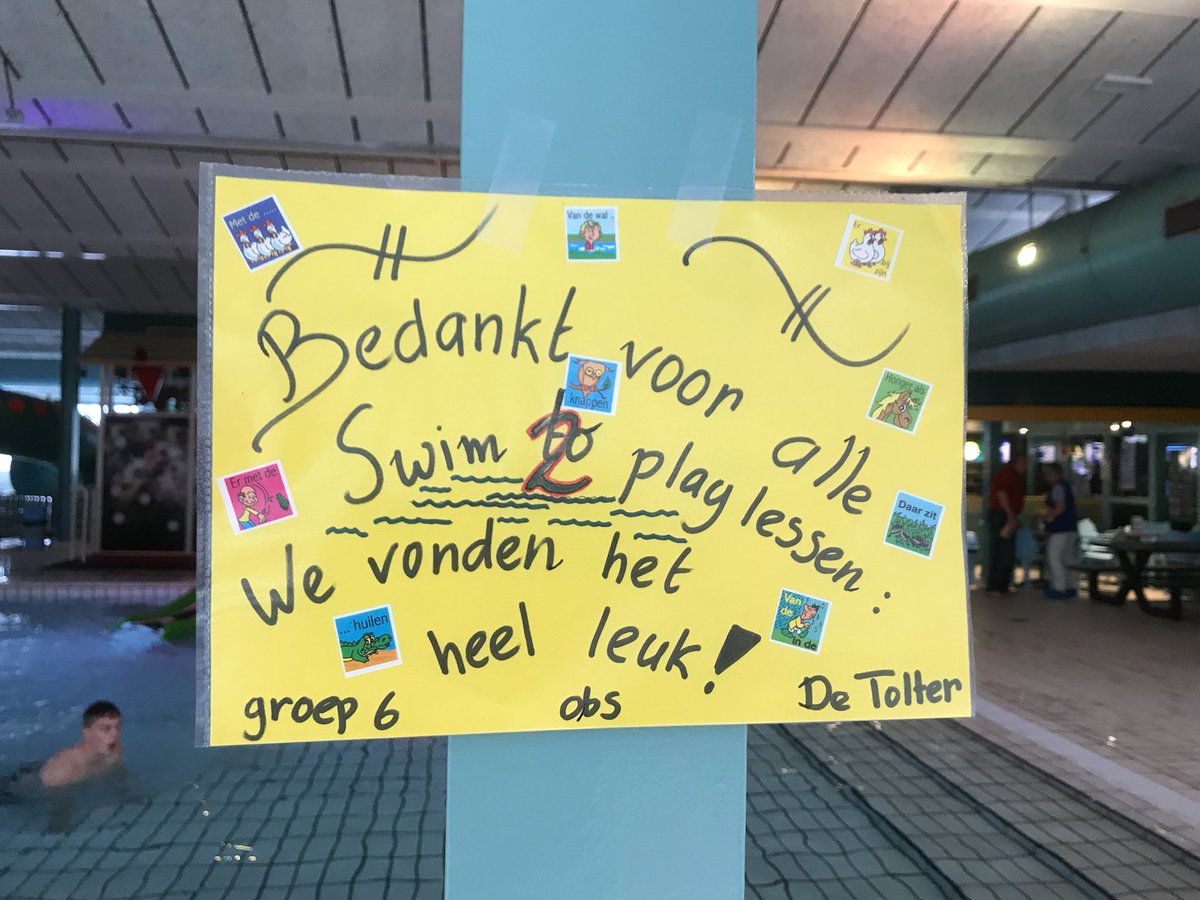 Met de .....
Van de wal ..
Er
...bij
zijn
Bedankt voor alle
knappen
Honger als
Swim 2 play lessen:
Er met de
Daar zit
We vonden het
heel leuk!
... huilen
Van
de
in de
groep 6 obs De Tolter